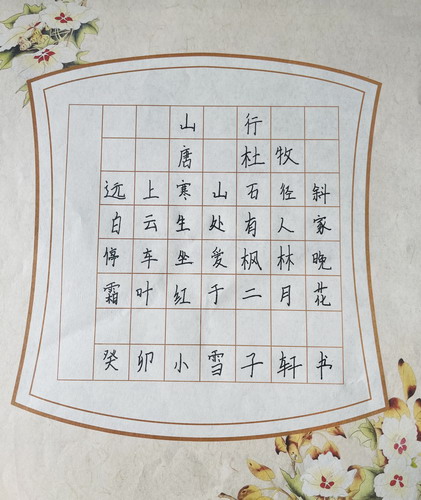 山行
唐 杜牧
远上寒山石径斜
白云生处有人家
停车坐爱枫林晚
霜叶红于二月花
癸卯小雪子轩书